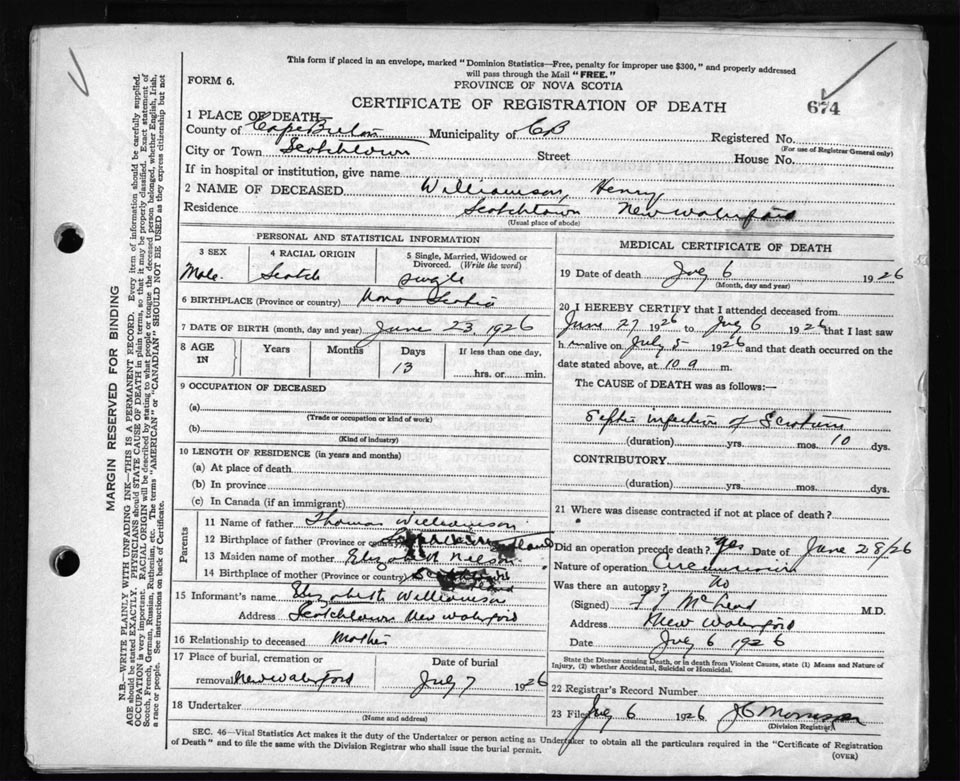 This form if placed in an envelope, marked "Dominion Statistics—Free, penalty for improper use $300," and properly addressed
will pass through the Mail "FREE."
FORM 6.
PROVINCE OF NOVA SCOTIA
CERTIFICATE OF REGISTRATION OF DEATH
674
1 PLACE OF DEATH
County of Cape Breton Municipality of CB Registered No.
(For use of Registrar General only)
City or Town Scotchtown Street House No.
If in hospital or institution, give name
2 NAME OF DECEASED Williamson, Henry
Residence Scotchtown New Waterford
(Usual place of abode)
PERSONAL AND STATISTICAL INFORMATION
3 SEX 4 RACIAL ORIGIN 5 Single, Married, Widowed or
Divorced. (Write the word)
Male. Scotch single
6 BIRTHPLACE (Province or country) Nova Scotia
7 DATE OF BIRTH (month, day and year) June 23, 1926
8 AGE IN Years Months Days If less than one day,
13 hrs. or min.
9 OCCUPATION OF DECEASED
(a)
(Trade or occupation or kind of work)
(b)
(Kind of industry)
10 LENGTH OF RESIDENCE (in years and months)
(a) At place of death
(b) In province
(c) In Canada (if an immigrant)
Parents
11 Name of father Thomas Williamson
12 Birthplace of father (Province or country)
13 Maiden name of mother
14 Birthplace of mother (Province or country)
15 Informant's name Elizabeth Williamson
Address Scotchtown New Waterford
16 Relationship to deceased Mother
17 Place of burial, cremation or Date of burial
removal New Waterford July 7 1926
18 Undertaker
(Name and address)
MEDICAL CERTIFICATE OF DEATH
19 Date of death July 6 1926
(Month, day and year)
20 I HEREBY CERTIFY that I attended deceased from
June 27 1926 to July 6 1926 that I last saw
him alive on July 5 1926 and that death occurred on the
date stated above, at 10 a m.
The CAUSE of DEATH was as follows:—
Septic infection of Scrotum
(duration) yrs. mos. 10 dys.
CONTRIBUTORY
(duration) yrs. mos. dys.
21 Where was disease contracted if not at place of death?
Did an operation precede death? yes Date of June 28/26
Nature of operation Circumcision
Was there an autopsy? No
(Signed) McLeod M.D.
Address New Waterford
Date July 6 1926
State the Disease causing Death, or in death from Violent Causes, state (1) Means and Nature of
Injury, (2) whether Accidental, Suicidal or Homicidal.
22 Registrar's Record Number
23 Filed July 6 1926 Morrison
(Division Registrar)
SEC. 46—Vital Statistics Act makes it the duty of the Undertaker or person acting as Undertaker to obtain all the particulars required in the "Certificate of Registration
of Death" and to file the same with the Division Registrar who shall issue the burial permit.
(OVER)
MARGIN RESERVED FOR BINDING
N.B.—WRITE PLAINLY WITH UNFADING INK—THIS IS A PERMANENT RECORD. Every item of information should be carefully supplied.
AGE should be stated EXACTLY. PHYSICIANS should STATE CAUSE OF DEATH in plain terms, so that it may be properly classified. Exact statement of
OCCUPATION is very important. RACIAL ORIGIN will be described by stating to what people or tongue the deceased person belonged, whether English, Irish,
Scotch, French, German, Russian, Ruthenian, etc. The terms "AMERICAN" or "CANADIAN" SHOULD NOT BE USED as they express citizenship but not
a race or people. See instructions on back of Certificate.